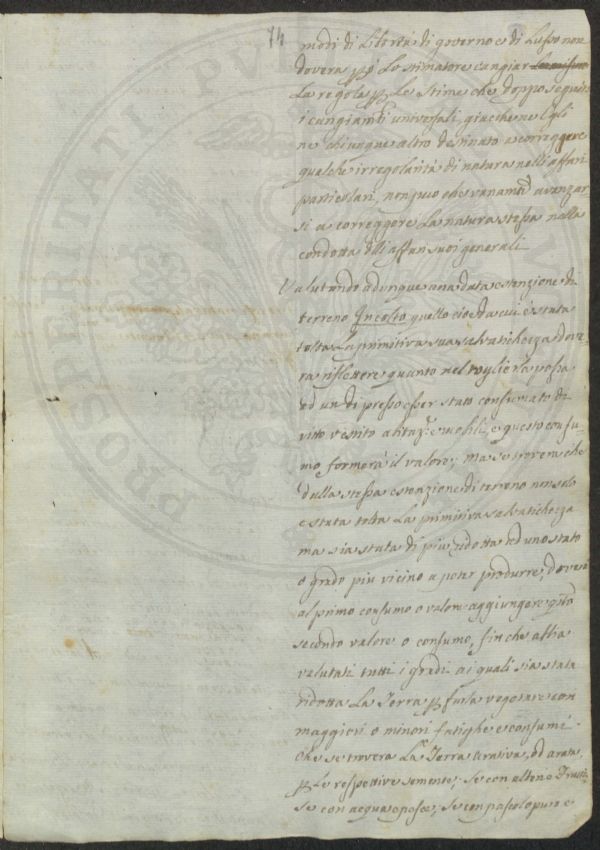 74
modi di Libertà di governo e di Lusso non
dovera p̱ò Lo stimatore cangiar
La regola p̱ Le Stime che doppo seguiti
i cangiamti universali, giacche ne Egli
ne chiunque altro destinato a correggere
qualche irregolarità di natura nelli affari
particolari, non puo che vanamte avanzar
si a correggere La natura stessa nella
condotta delli affari suoi generali.
Valutando adunque una data estenzione di
terreno Incolto quello cioè da cui è stata
tolta La primitiva sua salvatichezza dove
ra riflettere quanto nel toglierla possa
ad un di presso esser stato consumato di
vitto vestito abitaze e mobili, e questo consu-
mo formerà il valore; ma se trovera che
dalla stessa estenzione di terreno non solo
è stata tolta La primitiva salvatichezza
ma sia stata di piu ridotta ad uno stato
o grado piu vicino a poter produrre, dovera
al primo consumo o valore aggiungere questo
secondo valore o consumo, finche abbia
valutati tutti i gradi ai quali sia stata
ridotta La Terra p̱ farla vegetare con
maggiori o minori fatighe e consumi.
Che se trovera La Terra arativa, od arata
p̱ Le respettive semente; Se con alberi e Frutti
Se con acqua e pesce, Se con pascolo puro e
PROSPERITATI PVBLICAE